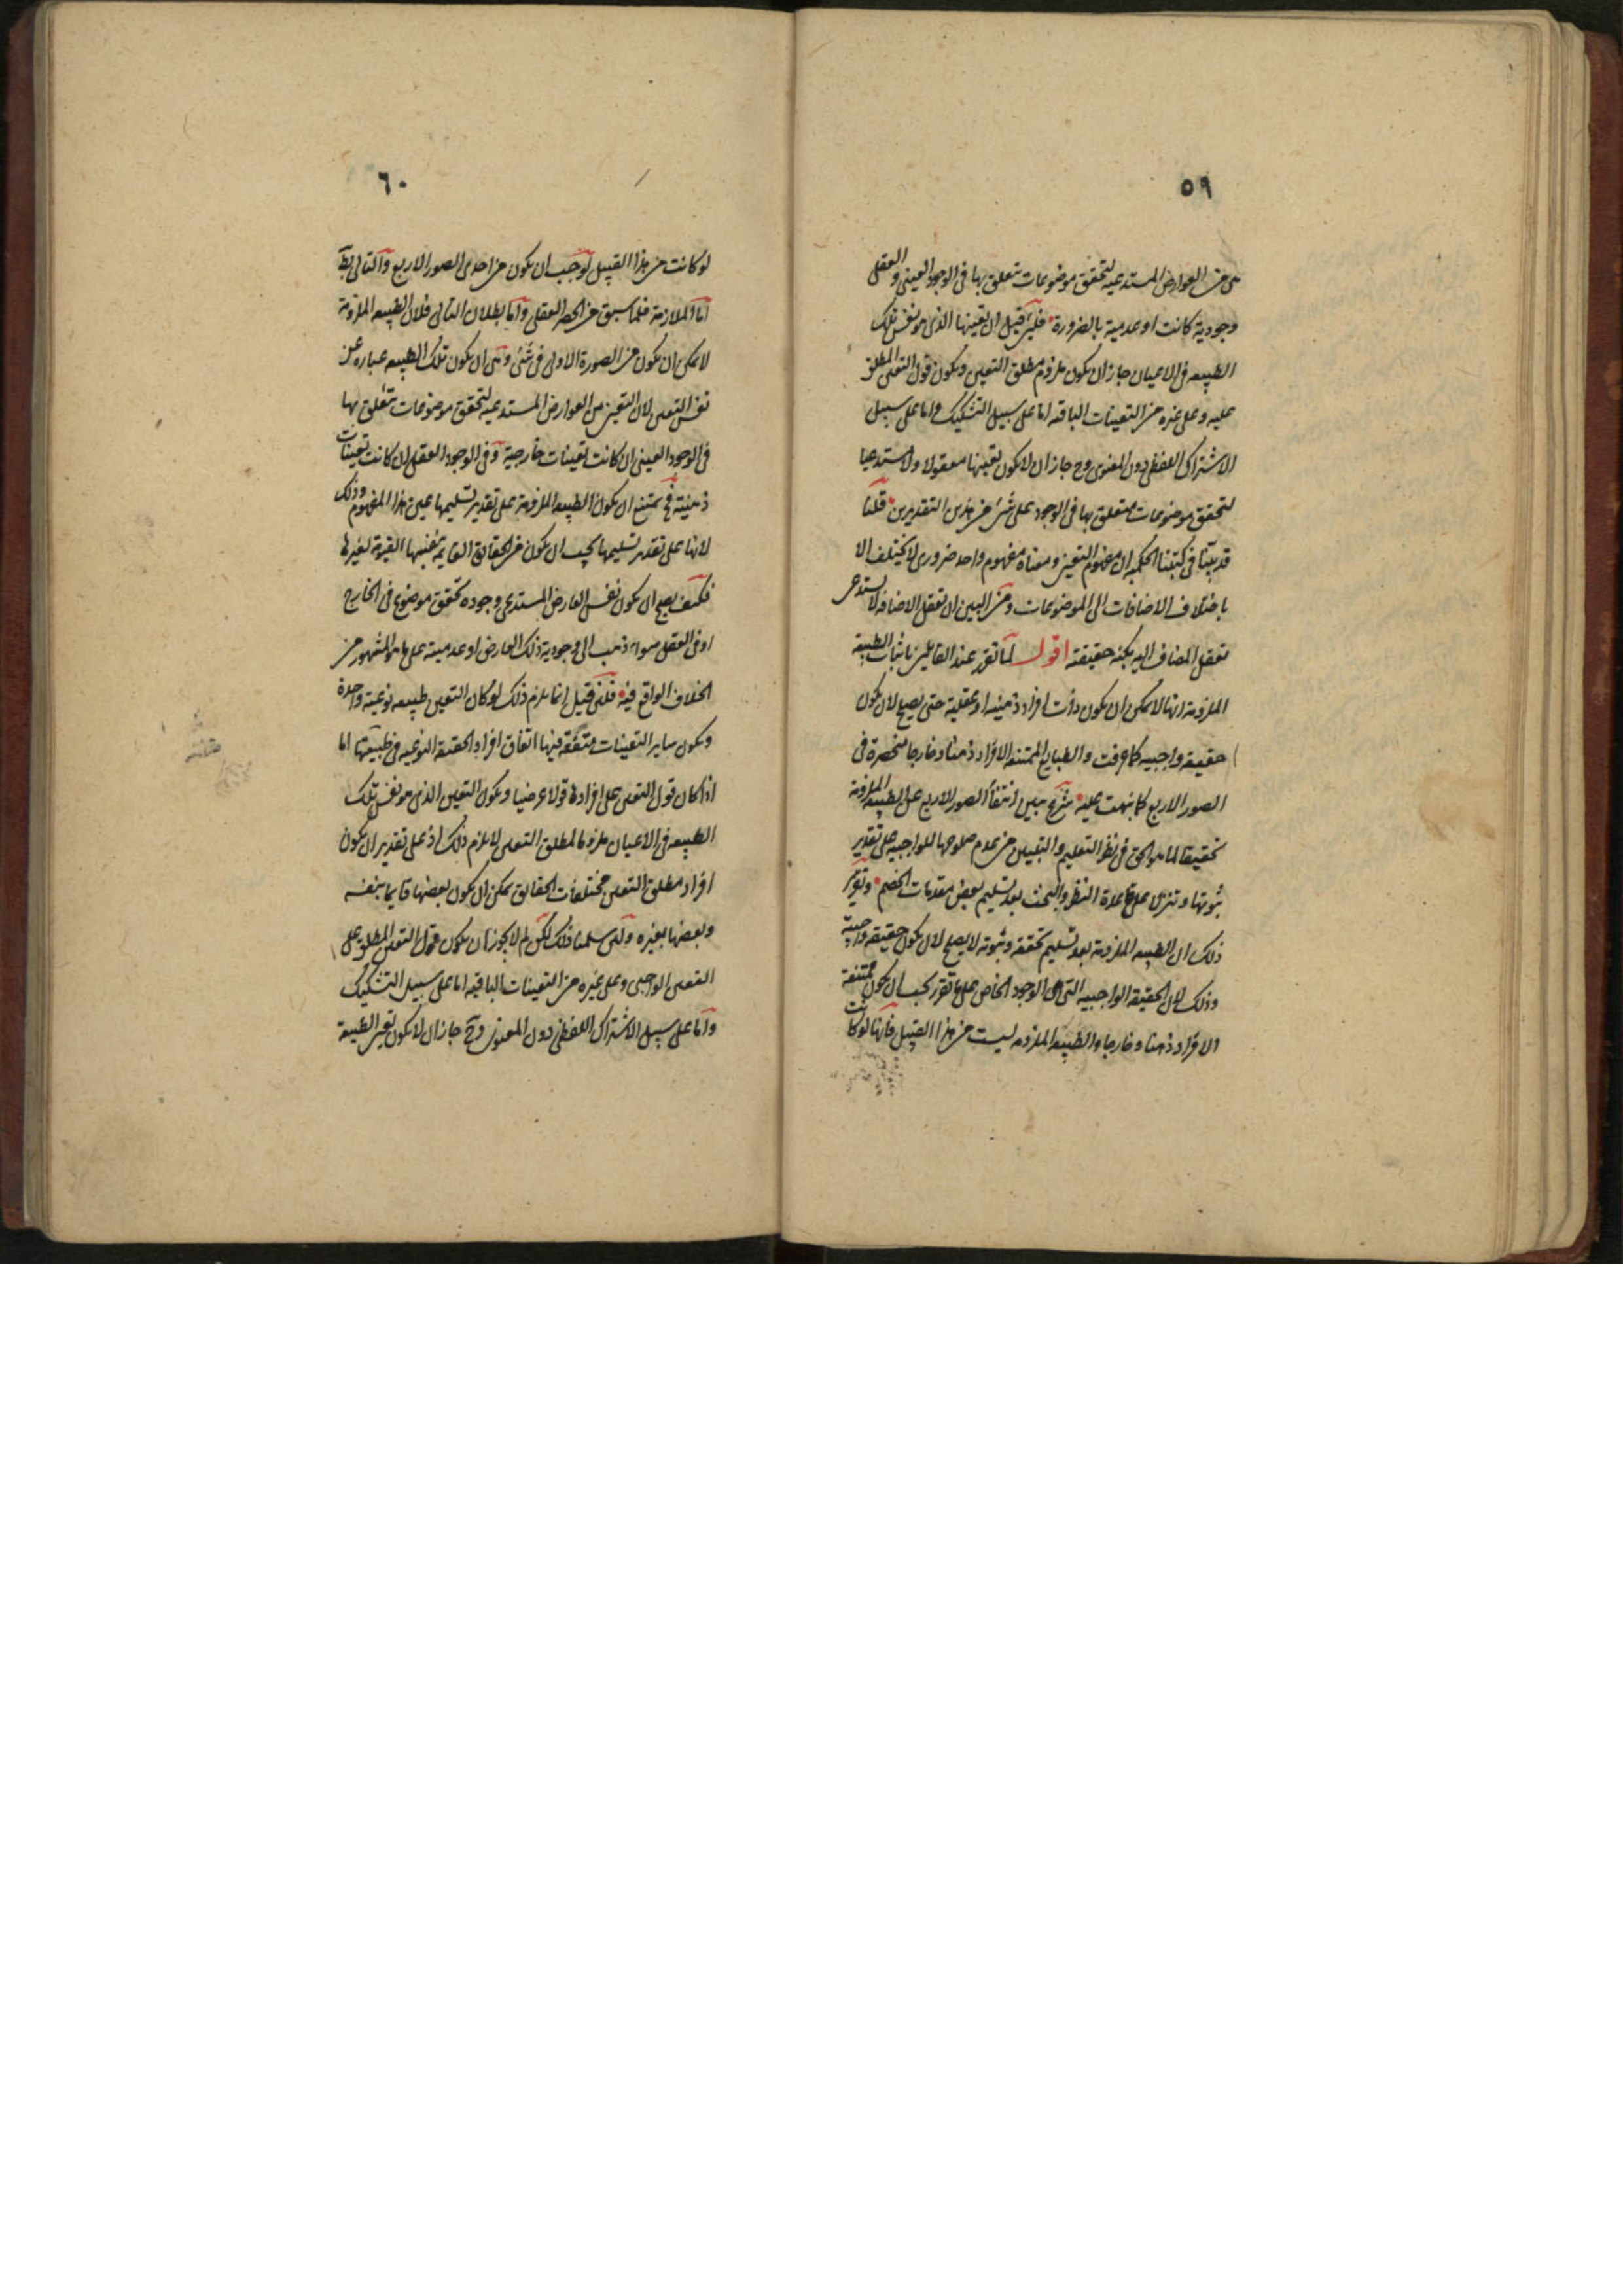 ٥٩
هى من العوارض المستدعيه لتحقق موضوعات تتعلق بها فى الوجود العينى والعقلى
وجودية كانت او عدمية بالضرورة فلئن قيل ان تعينها الذى هو نفس تلك
الطبيعه فى الاعيان جاز ان يكون ملزوم مطلق التعين ويكون قول التعين المطلق
عليه وعلى غيره من التعينات الباقيه اما على سبيل التشكيك واما على سبيل
الاشتراك اللفظى دون المعنوى وح جاز ان لا يكون تعينها معقولا ولا مستدعيا
لتحقق موضوعات يتعلق بها فى الوجود على شئ من هذين التقديرين قلنا
قد بينا فى كتبنا الحكميه ان مفهوم التعين ومعناه مفهوم واحد ضرورى لا يختلف الا
باختلاف الاضافات الى الموضوعات ومن البين ان تعقل الاضافه لا يستدعى
تعقل المضاف اليه بكنه حقيقته اقول لما تقرر عند القايلين باثبات الطبيعة
الملزومه انها لا يمكن ان يكون ذات افراد ذهنيه او عقلية حتى يصلح لان يكون
حقيقه واجبيه كما عرفت والطبايع الممتنعه الافراد ذهنا وخارجا منحصرة فى
الصور الاربع كما نبهت عليه شرع يبين انتفأ الصور الاربع عن الطبيعه الملزومه
تحقيقا لما هو الحق فى نظر التعليم والتبيين من عدم صلوحها للواجبيه على تقدير
ثبوتها وتنزل على قاعدة النظر والبحث بعد تسليم بعض مقدمات الخصم وتقرير
ذلك ان الطبيعه الملزومه بعد تسليم تحققه وثبوته لا يصلح لان يكون حقيقه واجبية
وذلك لان الحقيقه الواجبيه التى هى الوجود الخاص على ما تقرر يجب ان يكون ممتنعة
الافراد ذهنا وخارجا والطبيعه الملزومه ليست من هذا القبيل فانها لو كانت
٦٠
لو كانت من هذا القبيل لوجب ان يكون من احدى الصور الاربع والتالى بط
اما الملازمة فلما سبق من الحصر العقلى واما بطلان التالى فلان الطبيعه الملزومة
لا يمكن ان يكون من الصورة الاولى فى شئ وهى ان يكون تلك الطبيعه عباره عن
نفس التعين لان التعين من العوارض المستدعيه لتحقق موضوعات يتعلق بها
فى الوجود العينى ان كانت تعينات خارجية وفى الوجود العقلى ان كانت تعينات
ذهنية فح يمتنع ان يكون الطبيعه الملزومة على تقدير تسليمها عين هذا المفهوم وذلك
لانها على تقدير تسليمها يجب ان يكون من الحقايق القايمة بنفسها المقومة لغيرها
فكيف يصح ان يكون نفس العارض المستدعى وجوده تحقق موضوع فى الخارج
او فى العقل سواء ذهب الى وجودية ذلك العارض او عدميته على ما هو المشهور من
الخلاف الواقع فيه فلئن قيل انما يلزم ذلك لو كان التعين طبيعه نوعية واحدة
ويكون ساير التعينات متفقة فيها اتفاق افراد الحقيقه النوعيه فى طبيعتها اما
اذا كان قول التعين على افرادها قولا عرضيا ويكون التعين الذى هو نفس تلك
الطبيعه فى الاعيان ملزوما لمطلق التعين لا يلزم ذلك اذ على تقدير ان يكون
افراد مطلق التعين مختلفات الحقايق يمكن ان يكون بعضها قايما بنفسه
وبعضها بغيره ولئن سلمنا ذلك لكن لم لا يجوز ان يكون قول التعين المطلق على
التعين الواجبى وعلى غيره من التعينات الباقيه اما على سبيل التشكيك
واما على سبيل الاشتراك اللفظى دون المعنوى وح جاز ان لا يكون تعين الطبيعة